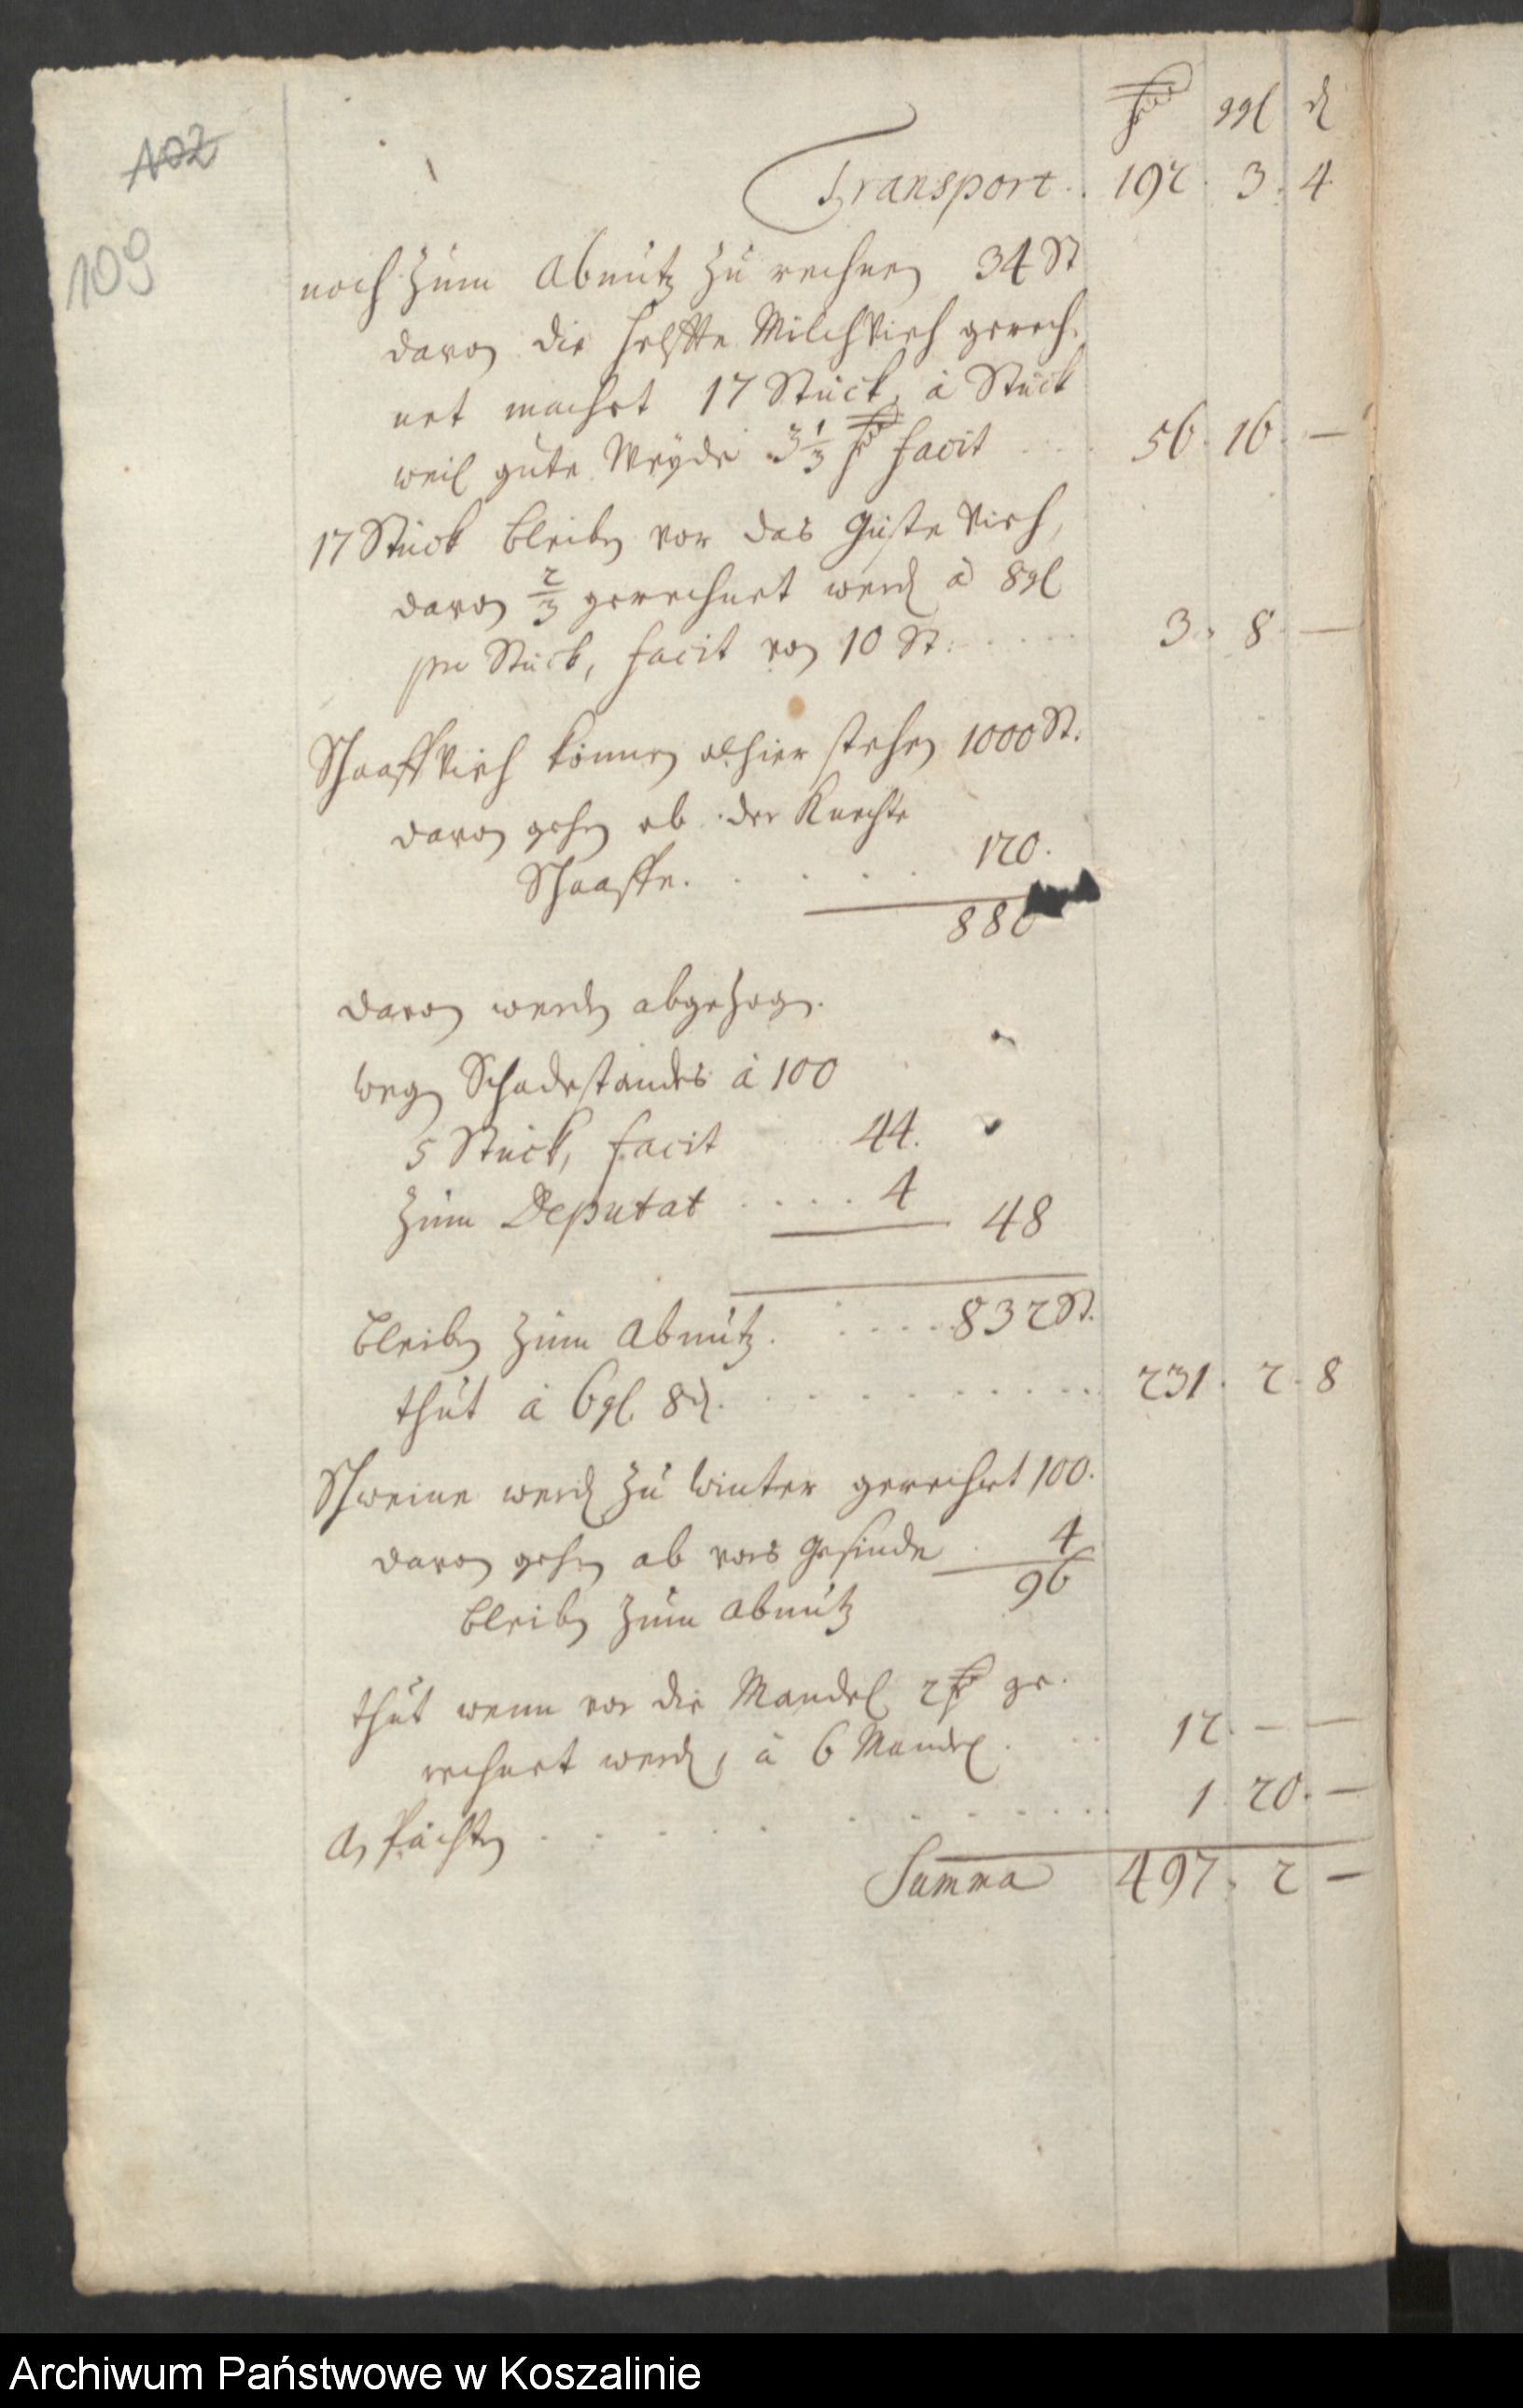 102
109
rthl ggl d
Transport. 192. 3. 4
noch zum Abnutz zu rechnen 34 St
davon die helffte Milchvieh gerech-
net machet 17 Stück, à Stück
weil gute Weyde 3 1/3 rthl facit 56. 16. —
17 Stück bleiben vor das Güste Vieh,
davon 2/3 gerechnet werden à 8 gl
pro Stück, facit von 10 St. 3. 8. —
Schaaff Vieh können alhier stehen 1000 St.
davon gehen ab der Knechte
Schaaffe. 120.
880
davon werden abgezogen.
wegen Schadestandes à 100
5 Stück, facit 44.
zum Deputat 4 48
bleiben zum Abnutz. 832 St.
thut à 6 gl. 8 d. 231. 2. 8
Schweine werden zu Winter gerechnet 100.
davon gehen ab vors Gesinde 4
96
bleiben zum Abnutz
thut wenn vor die Mandel 2 rthl ge-
rechnet werden, à 6 Mandel. 12. — —
An Pächten 1. 20. —
Summa 497. 2 —
Archiwum Państwowe w Koszalinie